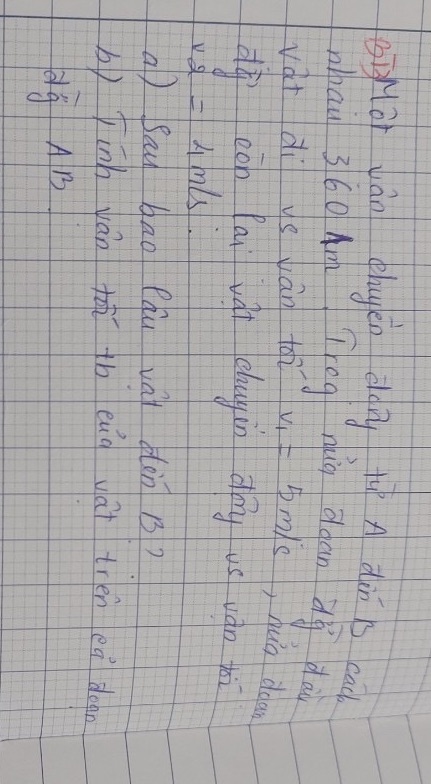 B13 Một vật chuyển động từ A đến B cách
nhau 360 m. Trog nửa đoạn đg đầu
vật đi vs vận tốc v1 = 5 m/s, nửa đoạn
đg còn lại vật chuyển động vs vận tốc
v2 = 4m/s.
a) Sau bao lâu vật đến B?
b) Tính vận tốc tb của vật trên cả đoạn
đg AB.